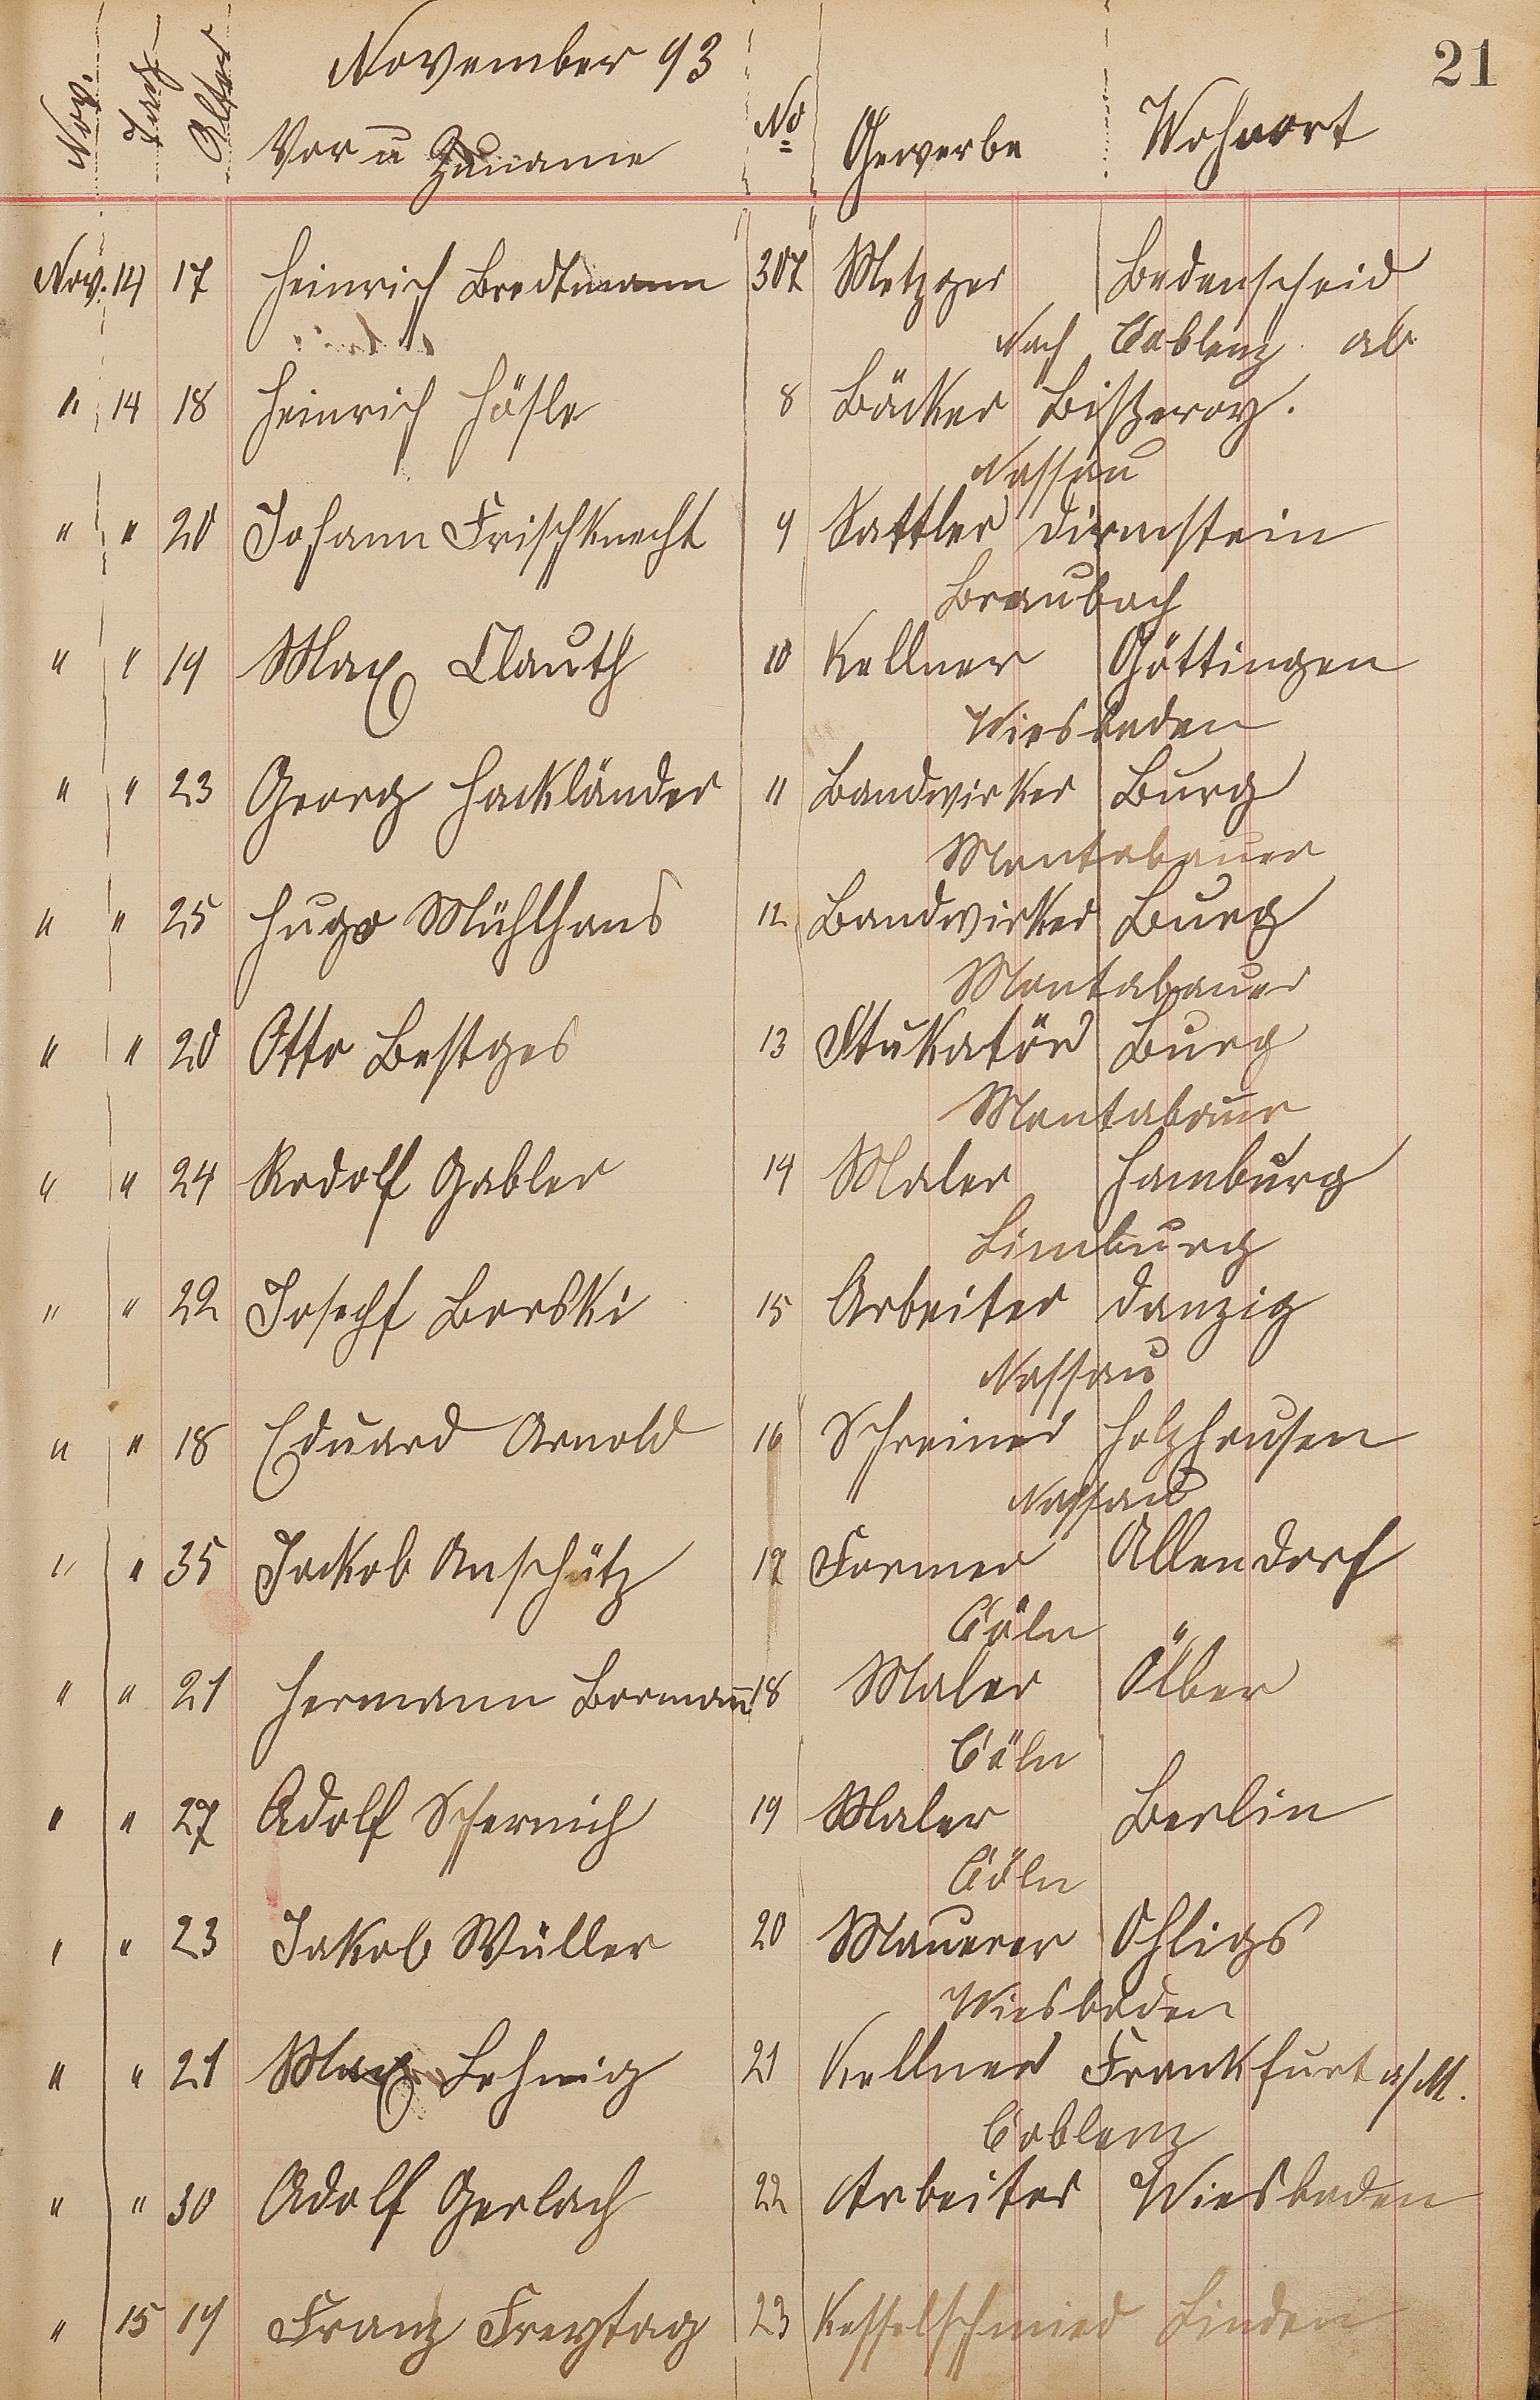 21
November 93
Nov. Tag Alter Vor u Zuname No Gewerbe Wohnort
Nov. 14 17 Heinrich Bredtmann 307 Metzger Bedenscheid
Nach Coblenz ab
" 14 18 Heinrich Hösle 8 Bäcker
Nassau
" " 20 Johann Frischknecht 9 Sattler Dirmstein
Braubach
" " 19 Max Clauth 10 Kellner Göttingen
Wiesbaden
" " 23 Georg Hackländer 11 Bandwirker Burg
Montabauer
" " 25 Hugo Mühlhaus 12 Bandwirker Burg
Montabauer
" " 20 Otto Bestges 13 Stukatör Burg
Montabaur
" " 24 Rodolf Gabler 14 Maler Hamburg
Limburg
" " 22 Josepf Borski 15 Arbeiter Danzig
Nassau
" " 18 Eduard Arnold 16 Schreiner Holzhausen
Nassau
" " 35 Jackob Anschütz 17 Former Allendorf
Cöln
" " 21 Hermann Bormann 18 Maler Ölber
Cöln
" " 27 Adolf Schernich 19 Maler Berlin
Cöln
" " 23 Jakob Wüller 20 Mauerer Ohligs
Wiesbaden
" " 21 Max Lehnig 21 Kellner Frankfurt a/M.
Coblenz
" " 30 Adolf Gerlach 22 Arbeiter Wiesbaden
" 15 19 Franz Freytag 23 Kesselschmied Linden